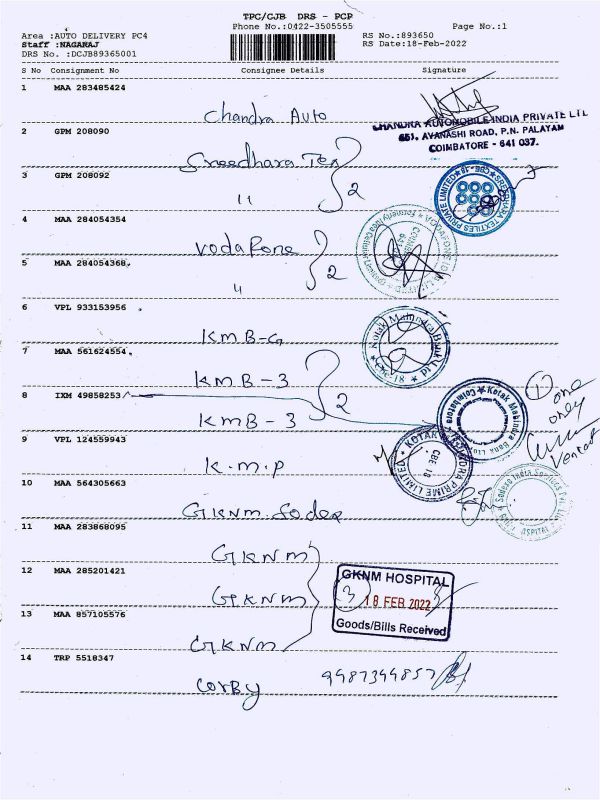 TPC/CJB DRS - PCP
Phone No.:0422-3505555
Page No.:1
Area :AUTO DELIVERY PC4
Staff :NAGARAJ
DRS No. :DCJB89365001
RS No.:893650
RS Date:18-Feb-2022
S No Consignment No Consignee Details Signature
1 MAA 283485424
Chandra Auto
CHANDRA AUTOMOBILE INDIA PRIVATE LTD
651, AVANASHI ROAD, P.N. PALAYAM
COIMBATORE - 641 037.
2 GPM 208090
Sreedhara Tex
2
3 GPM 208092
"
SREEDHARA TEXTILES PRIVATE LIMITED CBE-18
4 MAA 284054354
Vodafone
2
5 MAA 284054368
"
6 VPL 933153956
KMB-G
Kotak Mahindra Bank Ltd
7 MAA 561624554
KMB-3
2
8 IXM 49858253
KMB-3
Kotak Mahindra Bank Ltd Coimbatore
1 one
only
Venkat
9 VPL 124559943
K.M.P
KOTAK MAHINDRA PRIME LIMITED
CBE 18
10 MAA 564305663
GKNM.Sodex
Sodexo India Services Pvt
11 MAA 283868095
GKNM
12 MAA 285201421
GKNM
GKNM HOSPITAL
3
18 FEB 2022
Goods/Bills Received
13 MAA 857105576
GKNM
14 TRP 5518347
Corby
9987399857